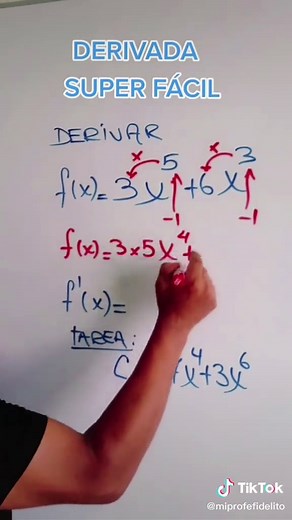 DERIVADA
SUPER FÁCIL
DERIVAR
x x
f(x)=3x⁵+6x³
-1 -1
f(x)=3×5x⁴+
f'(x)=
TAREA:
x⁴+3x⁶
TikTok
@miprofefidelito